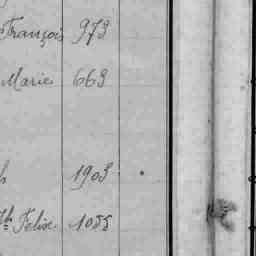 François 973
Marie 663
h 1903
Jh Felix 1055